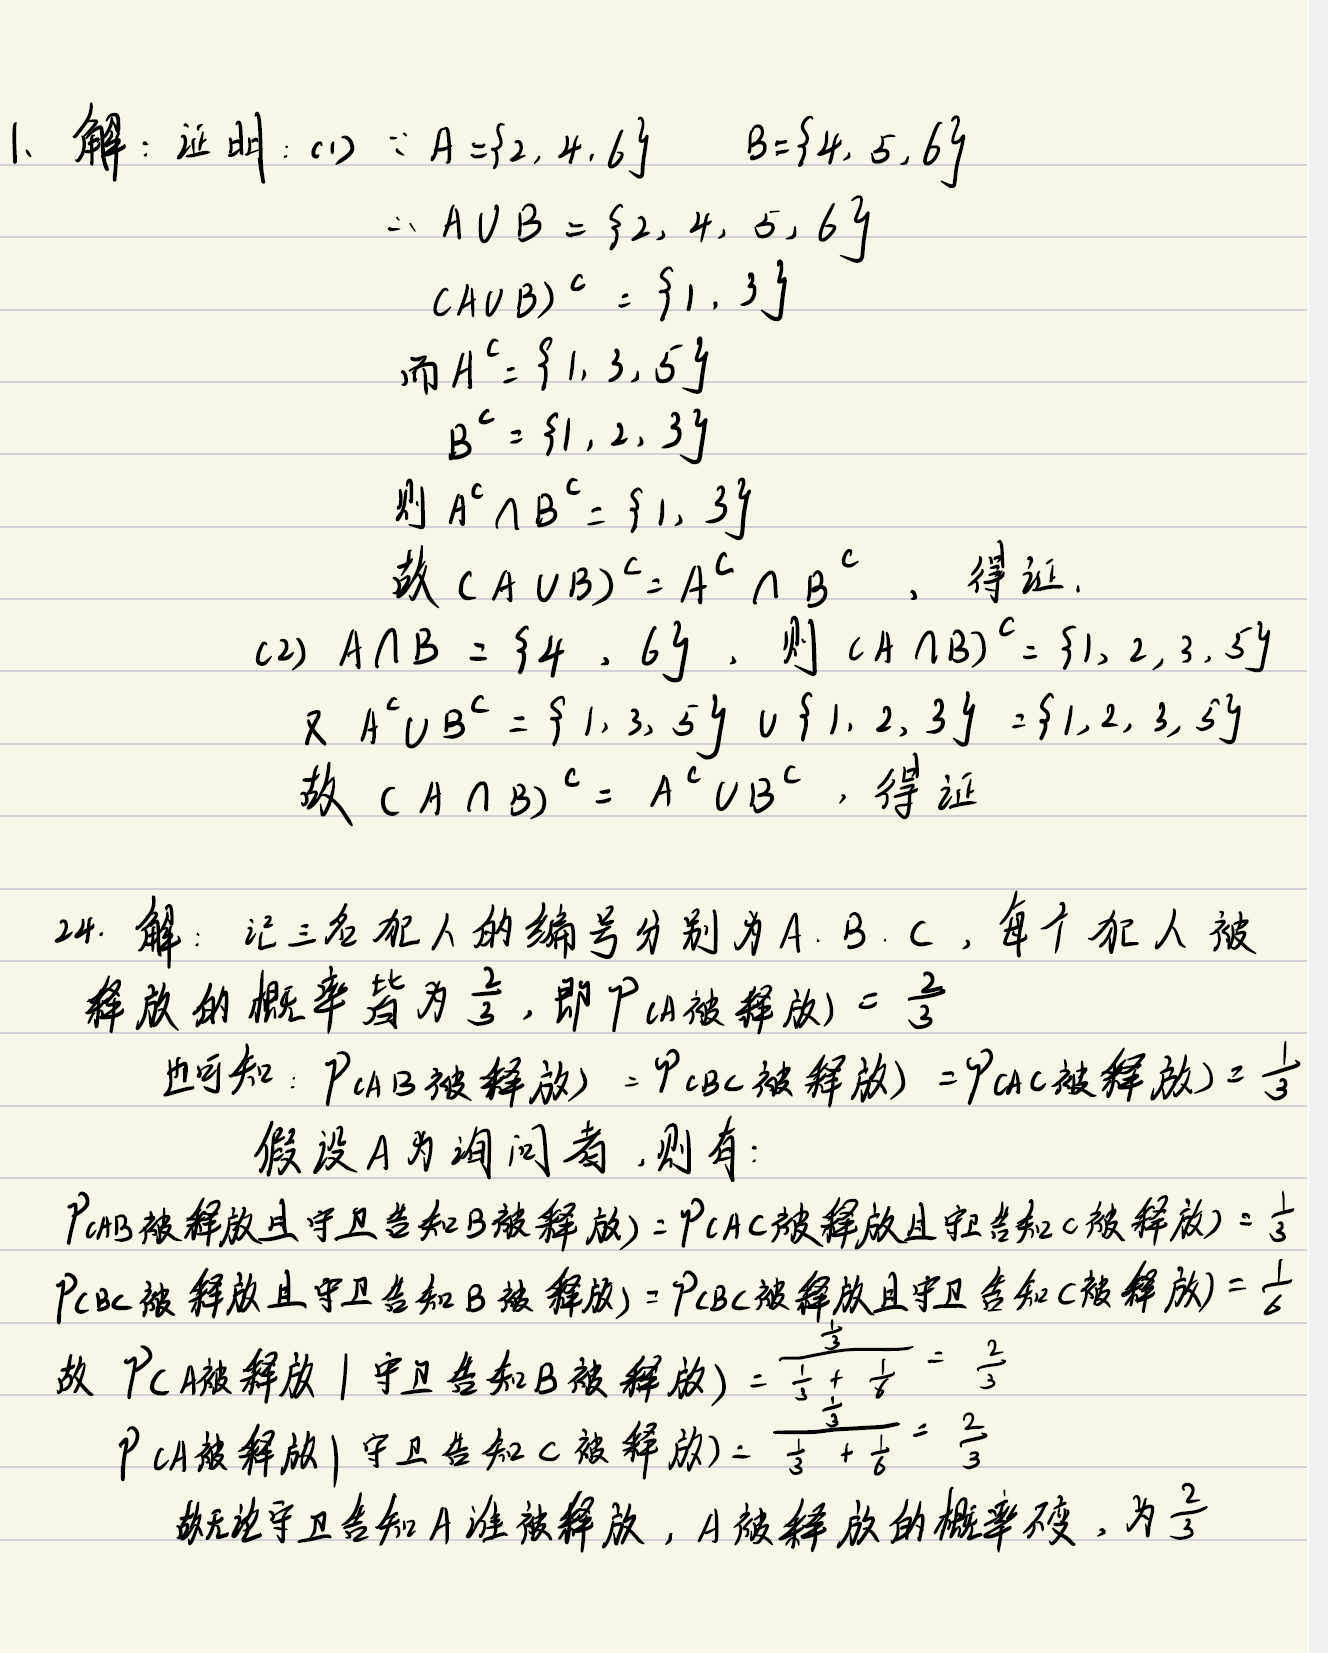 1、解：证明：(1) ∵ A={2, 4, 6} B={4, 5, 6}
∴ A∪B = {2, 4, 5, 6}
(A∪B)ᶜ = {1, 3}
而Aᶜ={1, 3, 5}
Bᶜ={1, 2, 3}
则 Aᶜ∩Bᶜ={1, 3}
故 (A∪B)ᶜ=Aᶜ∩Bᶜ，得证.
(2) A∩B={4, 6}，则 (A∩B)ᶜ={1, 2, 3, 5}
又 Aᶜ∪Bᶜ={1, 3, 5}∪{1, 2, 3}={1, 2, 3, 5}
故 (A∩B)ᶜ= Aᶜ∪Bᶜ，得证
24. 解：记三名犯人的编号分别为A. B. C，每个犯人被
释放的概率皆为2/3，即P(A被释放)=2/3
也可知：P(AB被释放)=P(BC被释放)=P(AC被释放)=1/3
假设A为询问者，则有：
P(AB被释放且守卫告知B被释放)=P(AC被释放且守卫告知C被释放)=1/3
P(BC被释放且守卫告知B被释放)=P(BC被释放且守卫告知C被释放)=1/6
故 P(A被释放|守卫告知B被释放)=(1/3)/(1/3+1/6)=2/3
P(A被释放|守卫告知C被释放)=(1/3)/(1/3+1/6)=2/3
故无论守卫告知A谁被释放，A被释放的概率不变，为2/3